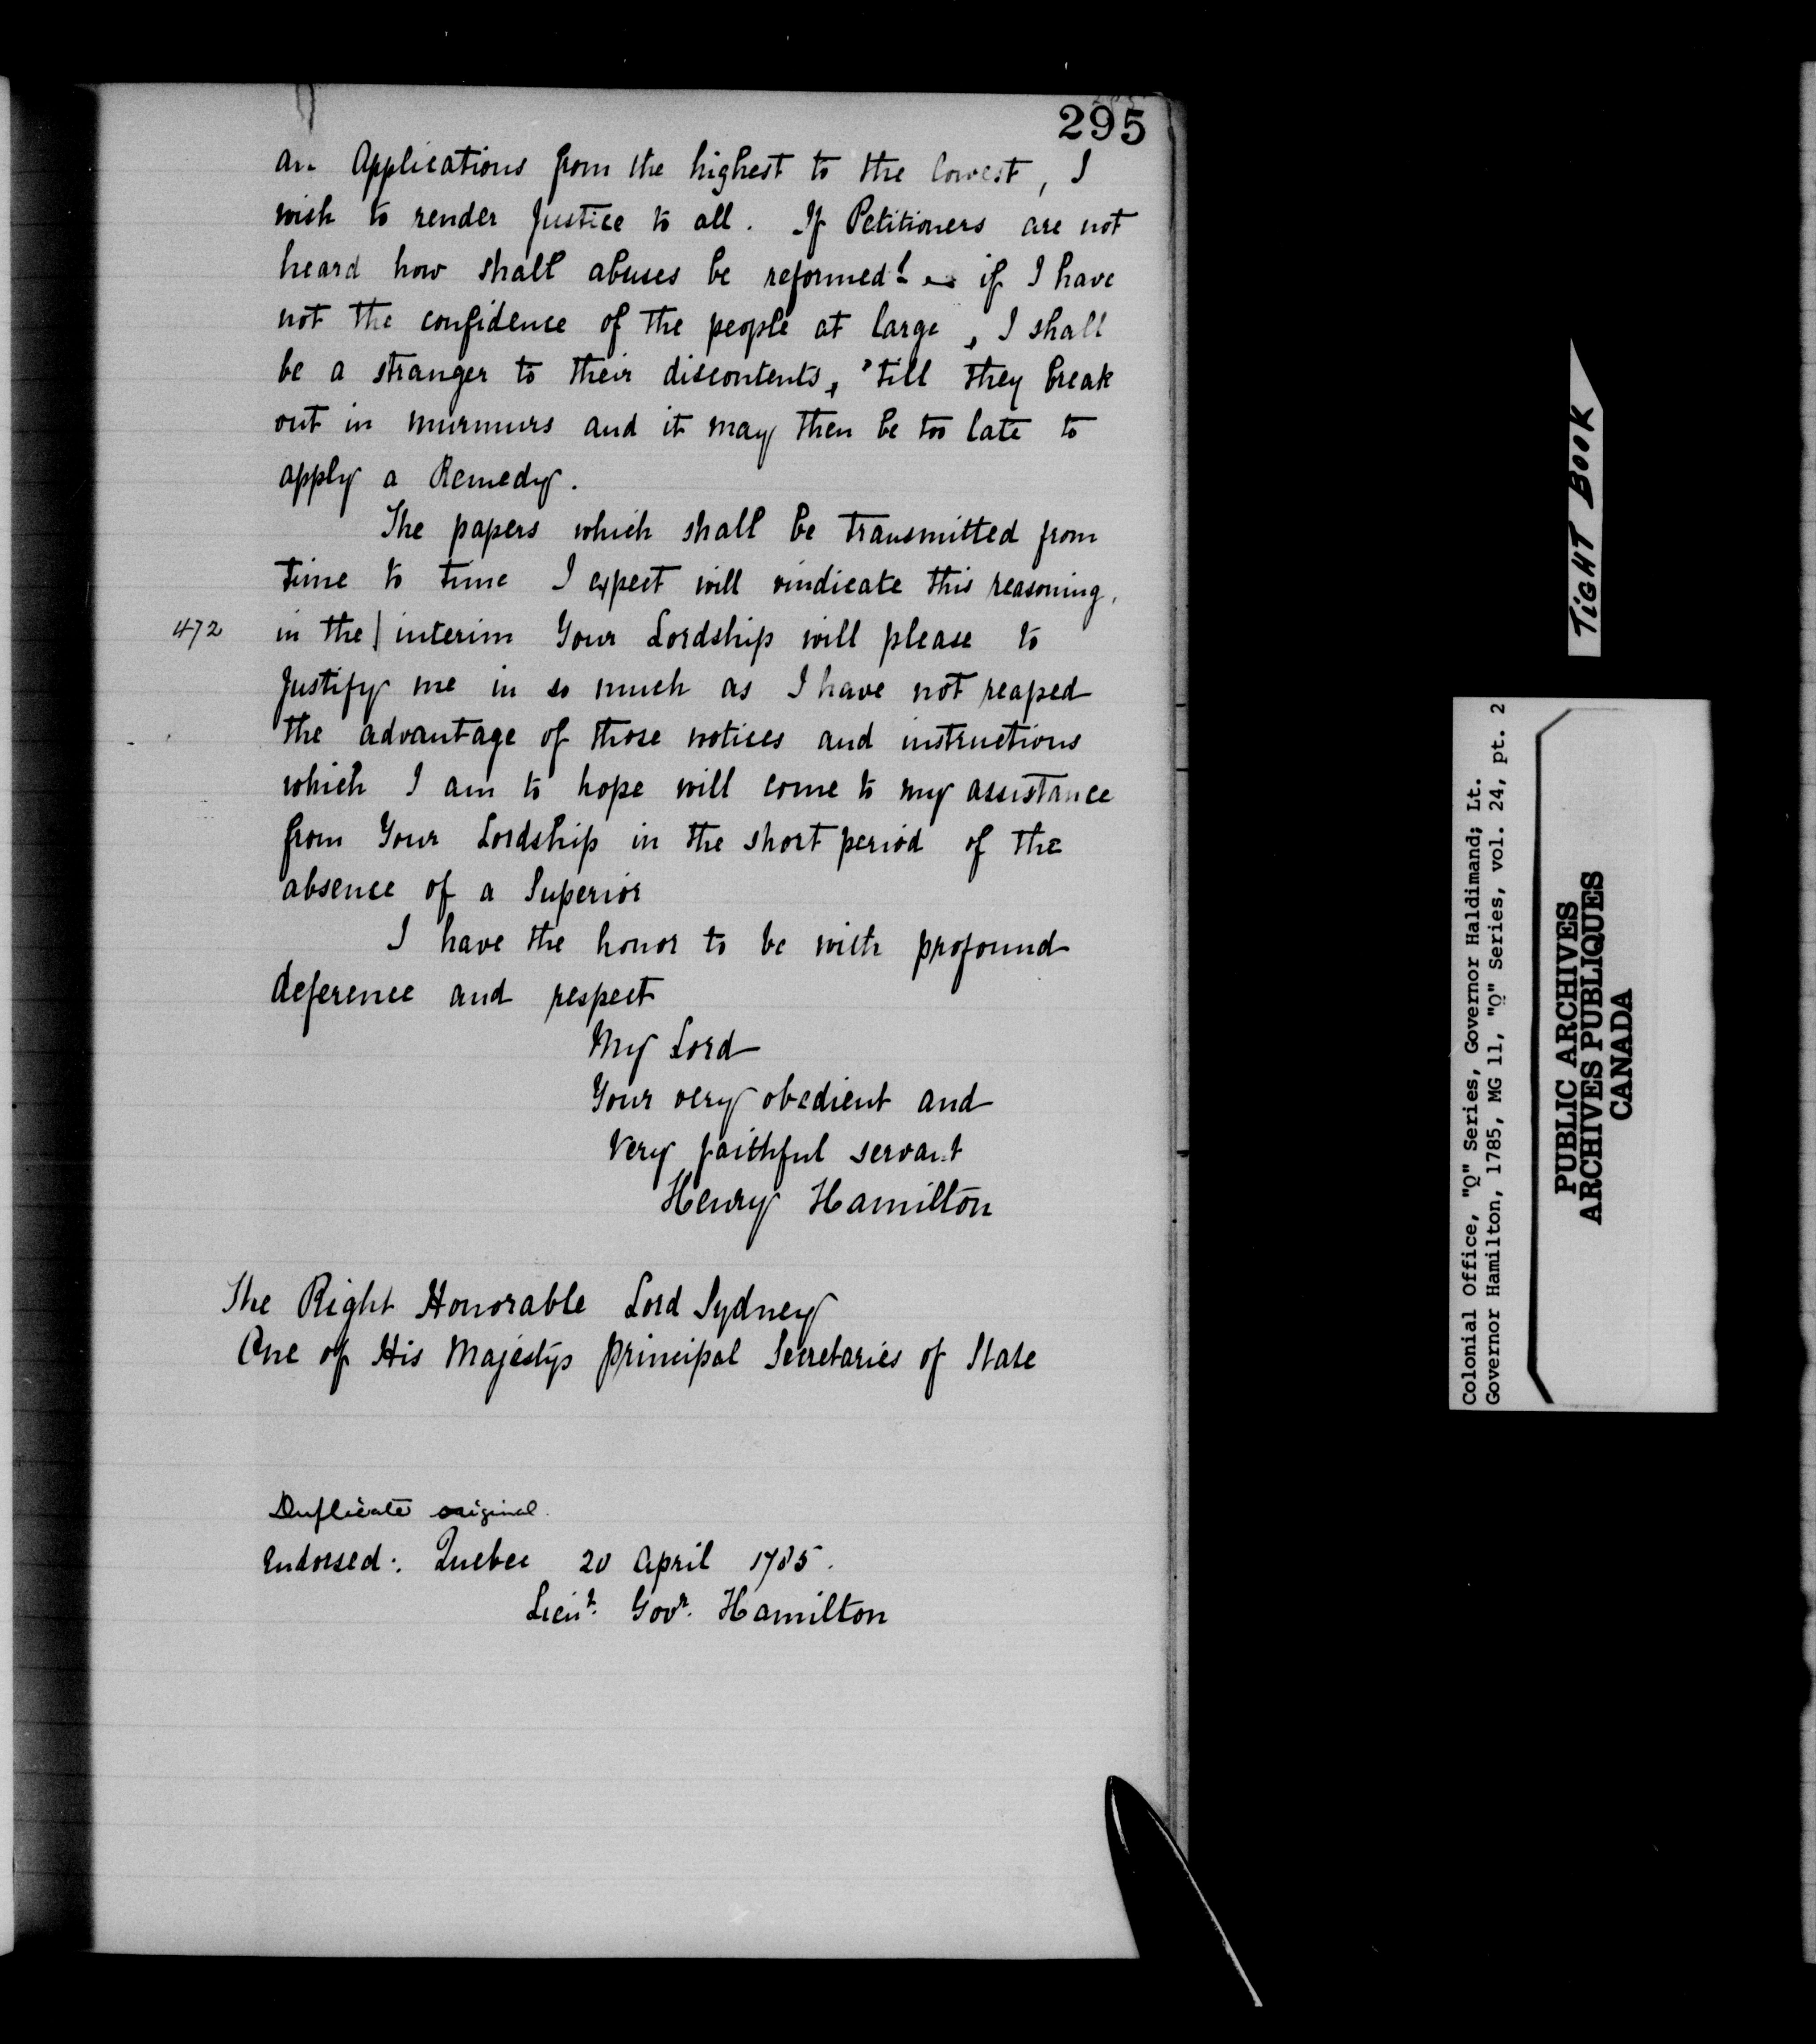 295
an Applications from the highest to the lowest, I
wish to render Justice to all. If Petitioners are not
heard how shall abuses be reformed? — if I have
not the confidence of the people at large, I shall
be a stranger to their discontents, 'till they break
out in murmurs and it may then be too late to
apply a Remedy.
The papers which shall be transmitted from
time to time I expect will vindicate this reasoning,
472 in the | interim Your Lordship will please to
Justify me in so much as I have not reaped
the advantage of those notices and instructions
which I am to hope will come to my assistance
from Your Lordship in the short period of the
absence of a Superior
I have the honor to be with profound
deference and respect
My Lord
Your very obedient and
very faithful servant
Henry Hamilton
The Right Honorable Lord Sydney
One of His Majestys Principal Secretaries of State
Duplicate original.
Endorsed: Quebec 20 April 1785.
Lieut. Govr. Hamilton
TIGHT BOOK
Colonial Office, "Q" Series, Governor Haldimand; Lt.
Governor Hamilton, 1785, MG 11, "Q" Series, vol. 24, pt. 2
PUBLIC ARCHIVES
ARCHIVES PUBLIQUES
CANADA